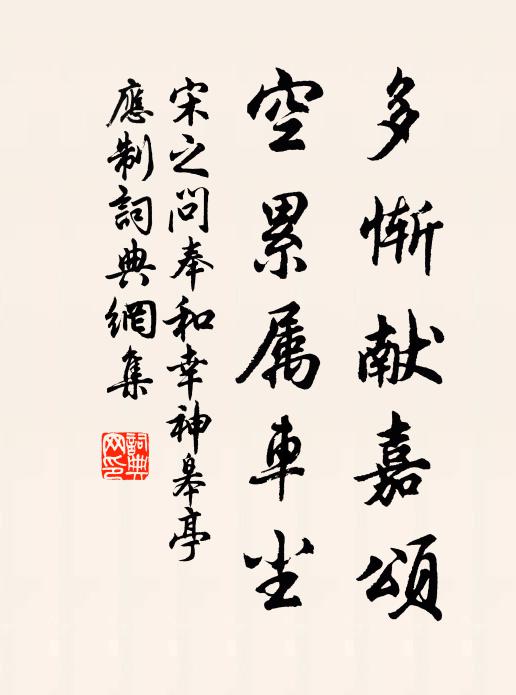 多慚献嘉頌
空累属車尘
宋之问奉和幸神皋亭
應制詞典網集
詞典
网印